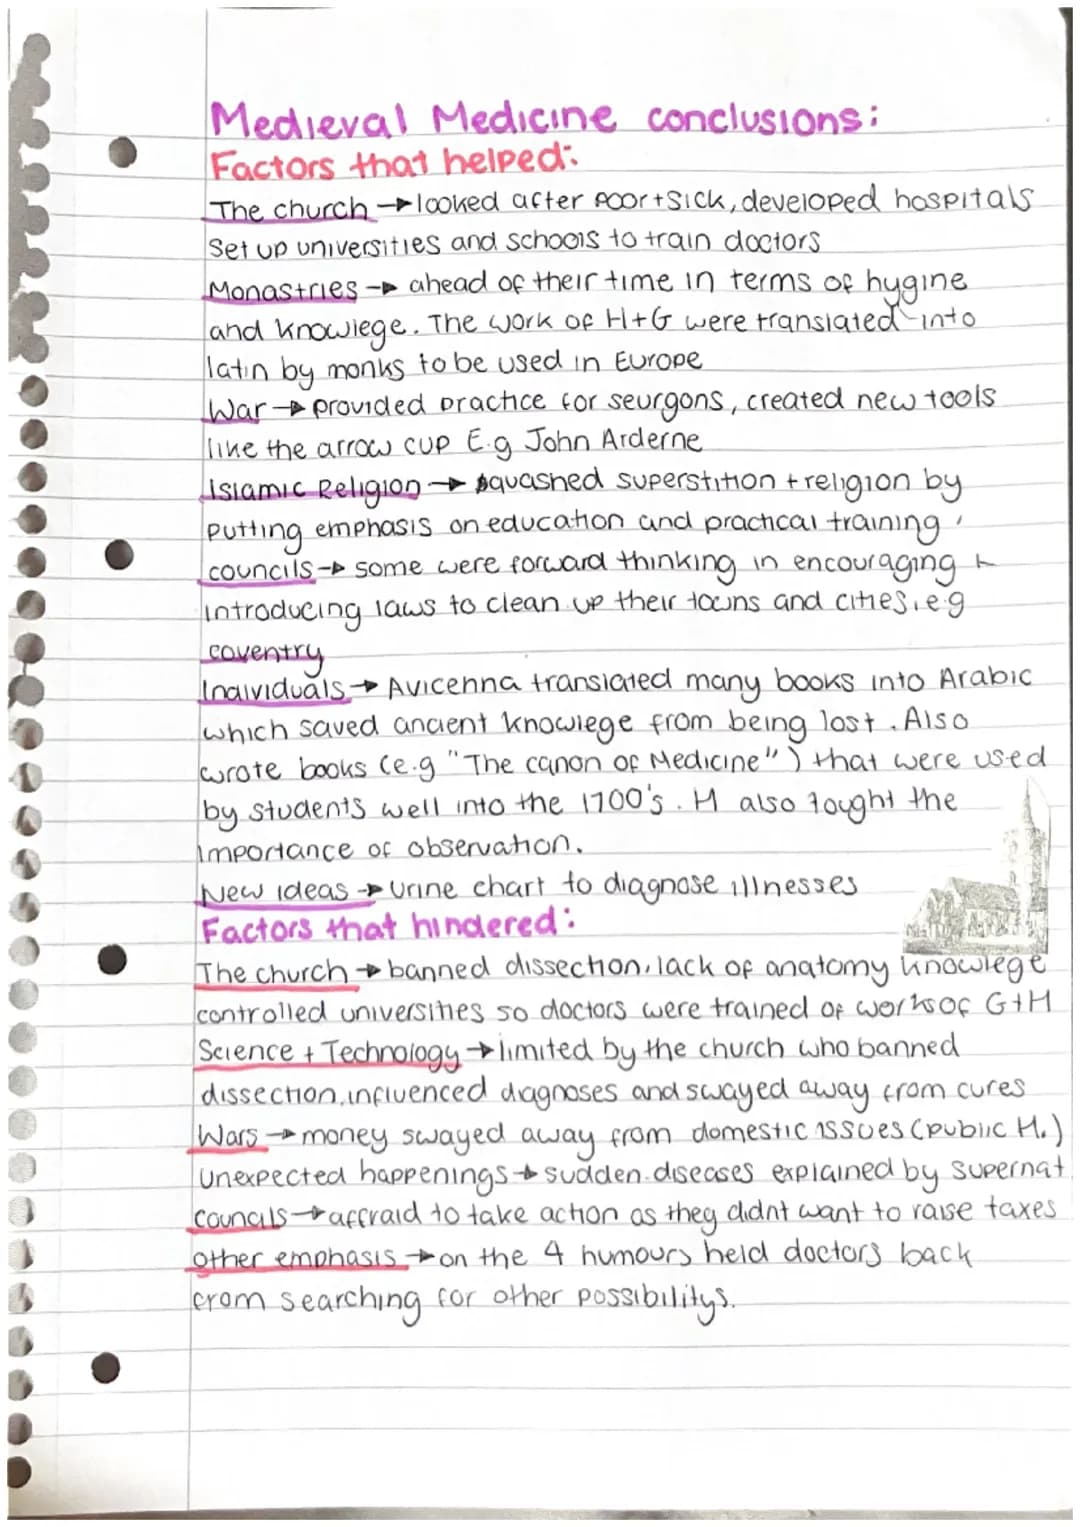 Medieval Medicine conclusions:
Factors that helped:
The church → looked after poor + sick, developed hospitals
Set up universities and schools to train doctors
Monastries → ahead of their time in terms of hygine
and knowlege. The work of H+G were translated into
latin by monks to be used in Europe
War → provided practice for seurgons, created new tools
like the arrow cup E.g John Arderne
Islamic Religion → squashed superstition + religion by
putting emphasis on education and practical training
councils → some were forward thinking in encouraging +
introducing laws to clean up their towns and cities, e.g
coventry
Individuals → Avicenna translated many books into Arabic
which saved ancient knowlege from being lost. Also
wrote books (e.g "The canon of Medicine") that were used
by students well into the 1700's. H also tought the
importance of observation.
New ideas → Urine chart to diagnose illnesses
Factors that hindered:
The church → banned dissection, lack of anatomy knowlege
controlled universities so doctors were trained of works of G+H
Science + Technology → limited by the church who banned
dissection, influenced diagnoses and swayed away from cures
Wars → money swayed away from domestic issues (public H.)
Unexpected happenings → sudden diseases explained by supernat
councils → affraid to take action as they didnt want to raise taxes
other emphasis → on the 4 humours held doctors back
from searching for other possibilitys.